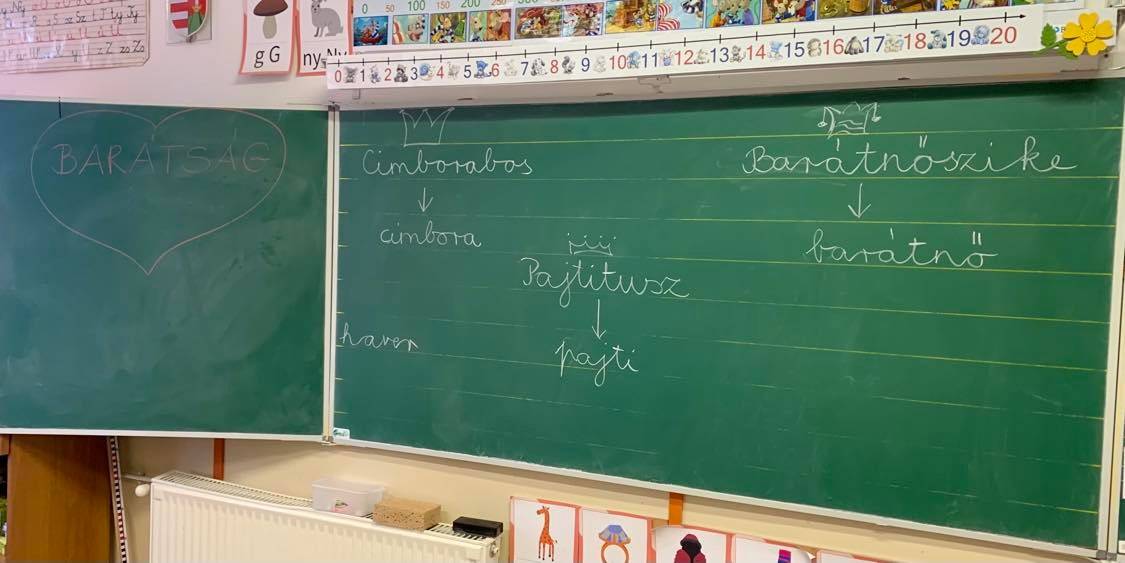 0 50 100 150 200 250
g G
ny Ny
0 1 2 3 4 5 6 7 8 9 10 11 12 13 14 15 16 17 18 19 20
BARÁTSÁG
Cimborabos
cimbora
haver
Pajtitusz
pajti
Barátnőszike
barátnő